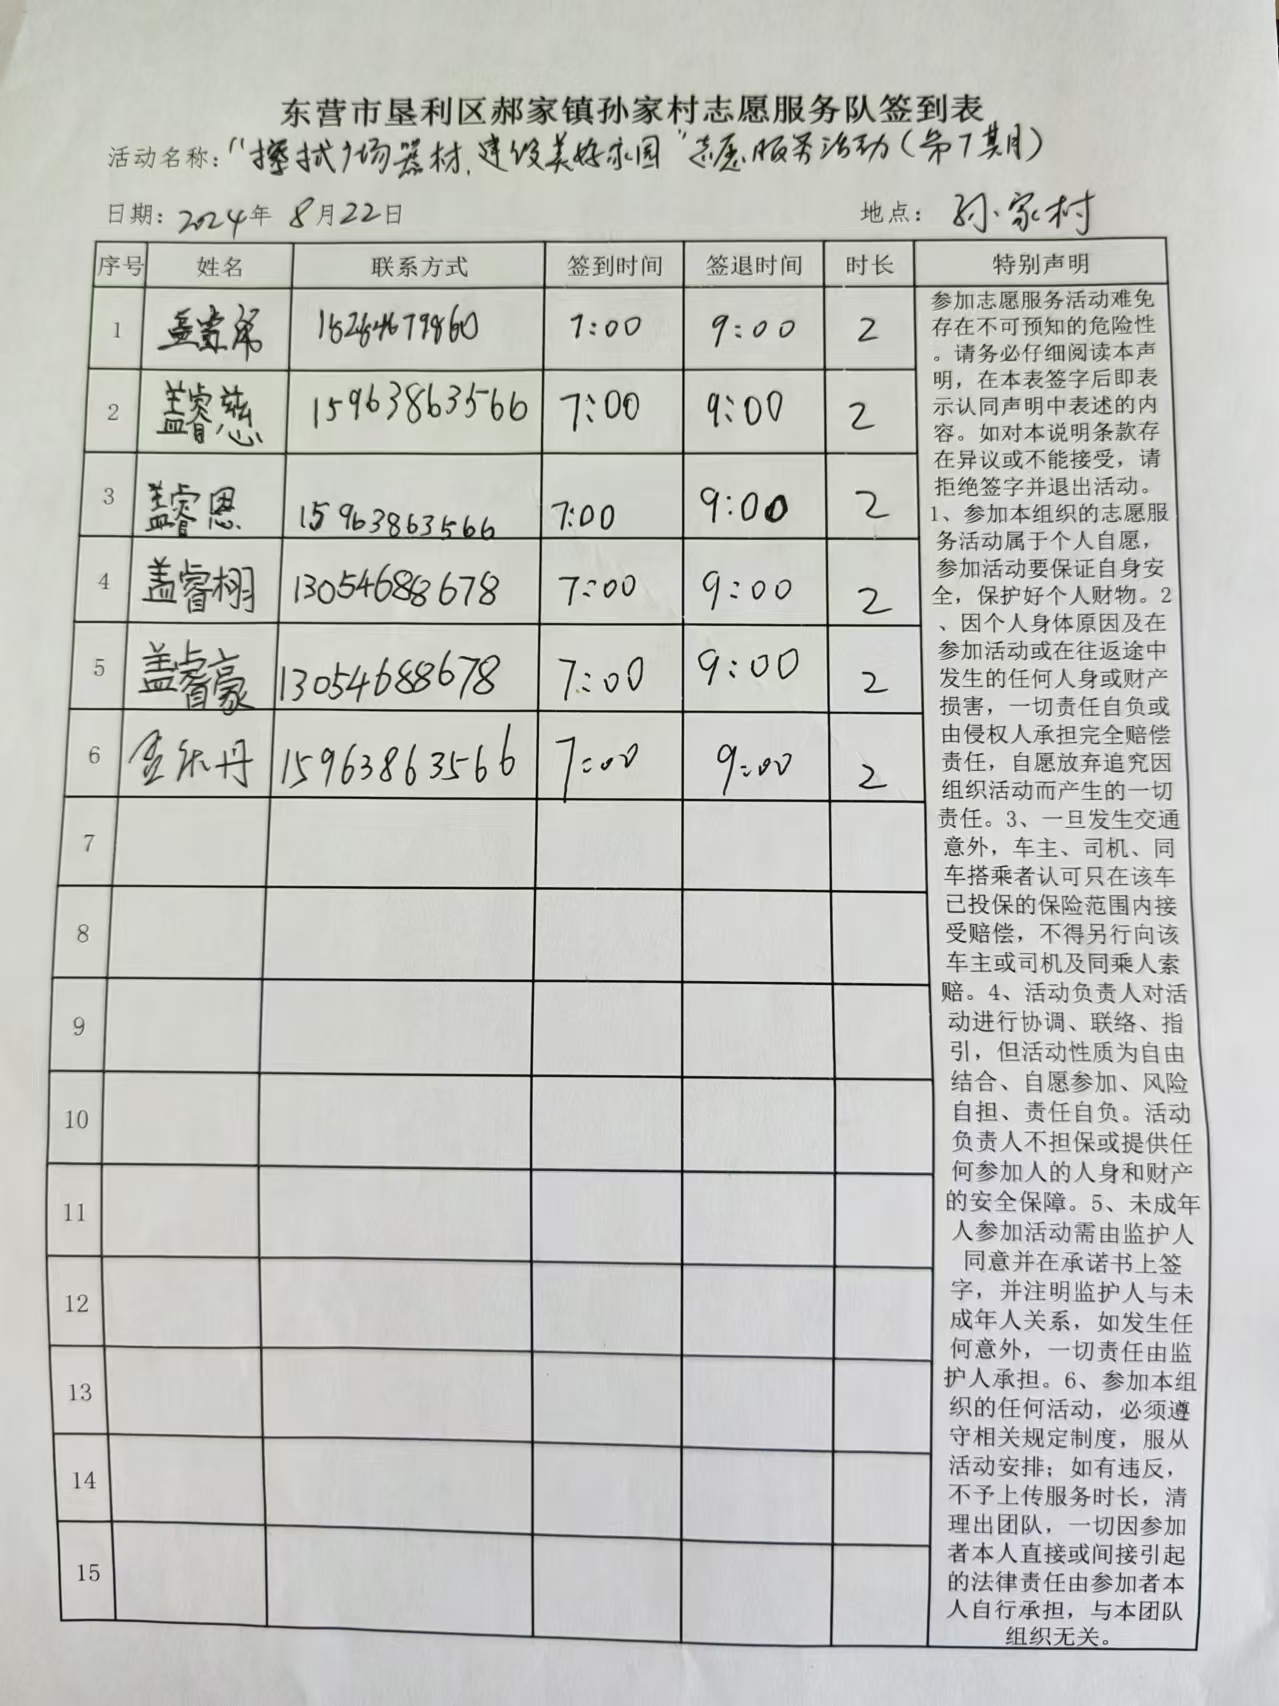 东营市垦利区郝家镇孙家村志愿服务队签到表
活动名称:“擦拭广场器材、建设美好家园”志愿服务活动(第7期)
日期: 2024年 8月22日 地点: 孙家村
序号 姓名 联系方式 签到时间 签退时间 时长 特别声明
1 盖 7:00 9:00 2
2 盖睿慈 15963863566 7:00 9:00 2
3 盖睿恩 15963863566 7:00 9:00 2
4 盖睿栩 13054688678 7:00 9:00 2
5 盖睿豪 13054688678 7:00 9:00 2
6 丹 15963863566 7:00 9:00 2
7
8
9
10
11
12
13
14
15
参加志愿服务活动难免
存在不可预知的危险性
。请务必仔细阅读本声
明，在本表签字后即表
示认同声明中表述的内
容。如对本说明条款存
在异议或不能接受，请
拒绝签字并退出活动。
1、参加本组织的志愿服
务活动属于个人自愿，
参加活动要保证自身安
全，保护好个人财物。2
、因个人身体原因及在
参加活动或在往返途中
发生的任何人身或财产
损害，一切责任自负或
由侵权人承担完全赔偿
责任，自愿放弃追究因
组织活动而产生的一切
责任。3、一旦发生交通
意外，车主、司机、同
车搭乘者认可只在该车
已投保的保险范围内接
受赔偿，不得另行向该
车主或司机及同乘人索
赔。4、活动负责人对活
动进行协调、联络、指
引，但活动性质为自由
结合、自愿参加、风险
自担、责任自负。活动
负责人不担保或提供任
何参加人的人身和财产
的安全保障。5、未成年
人参加活动需由监护人
同意并在承诺书上签
字，并注明监护人与未
成年人关系，如发生任
何意外，一切责任由监
护人承担。6、参加本组
织的任何活动，必须遵
守相关规定制度，服从
活动安排；如有违反，
不予上传服务时长，清
理出团队，一切因参加
者本人直接或间接引起
的法律责任由参加者本
人自行承担，与本团队
组织无关。